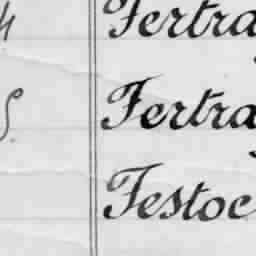 Fertra
Fertra
Festoc